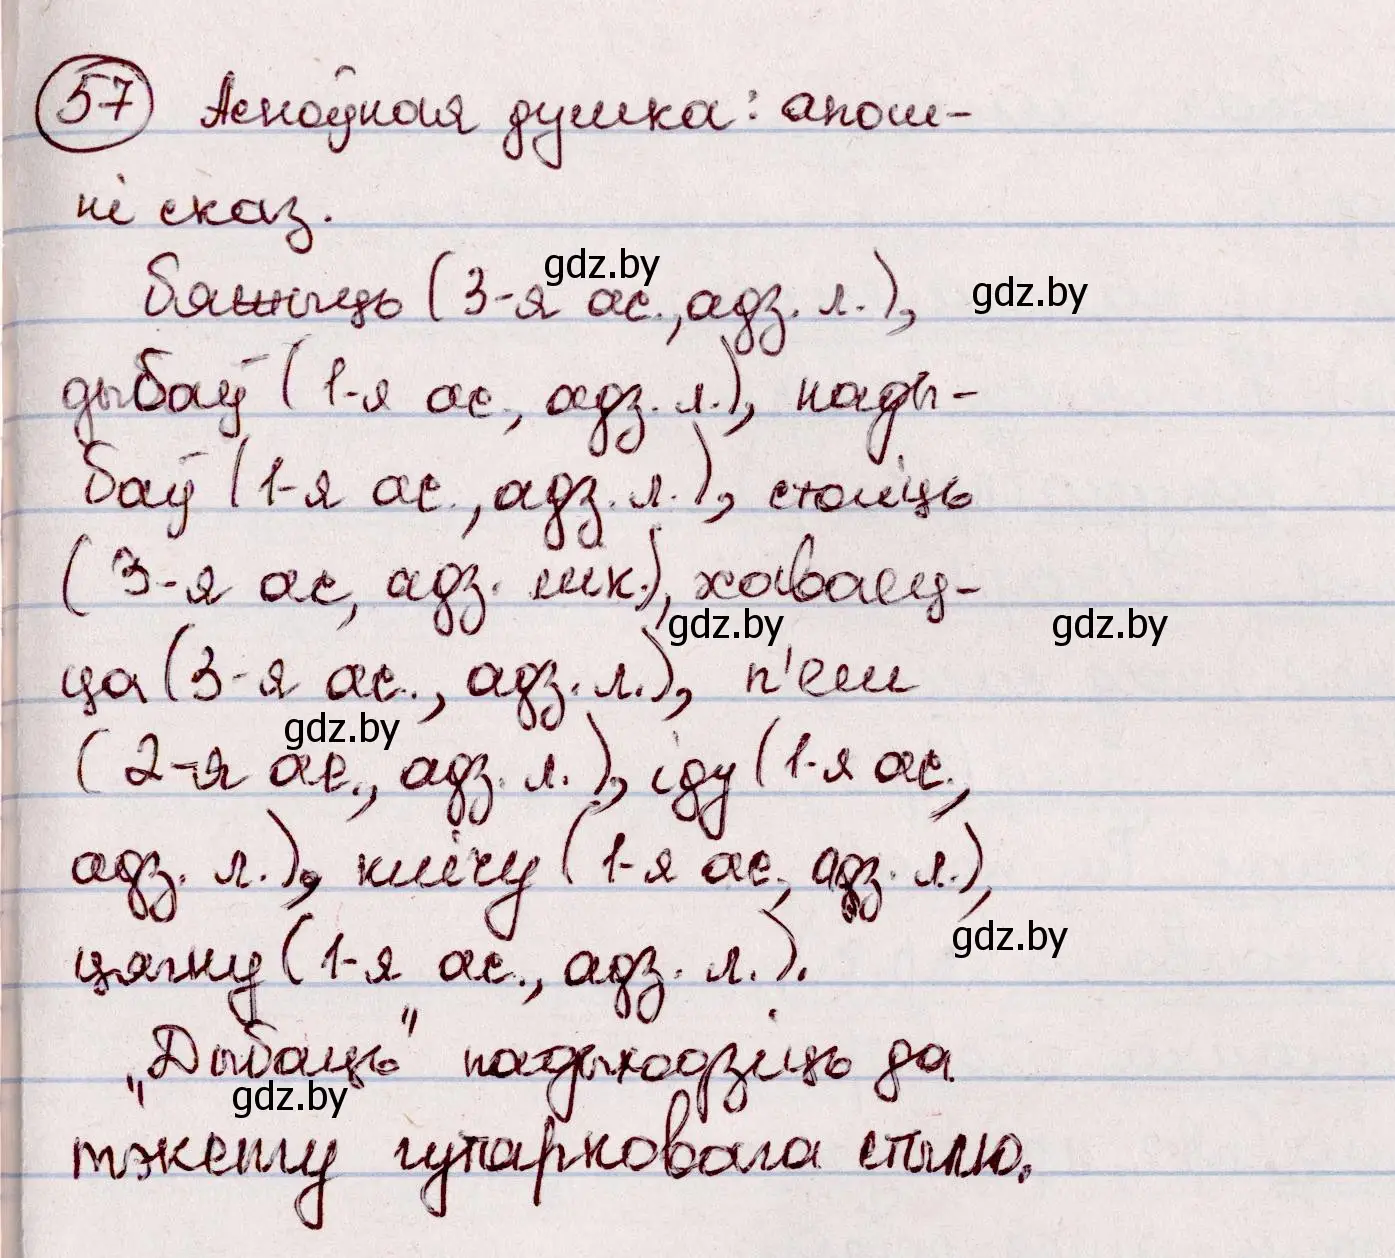 57 Асноўная думка: апош-
ні сказ.
бяжыць (3-я ас., адз. л.),
дыбаў (1-я ас., адз. л.), нады-
баў (1-я ас., адз. л.), стаіць
(3-я ас, адз. лік.), хаваец-
ца (3-я ас., адз. л.), п'еш
(2-я ас., адз. л.), іду (1-я ас.,
адз. л.), клічу (1-я ас, адз. л.),
цягну (1-я ас., адз. л.).
„Дыбаць" падыходзіць да
тэксту гутарковага стылю.
gdz.by
gdz.by
gdz.by
gdz.by
gdz.by
gdz.by
gdz.by